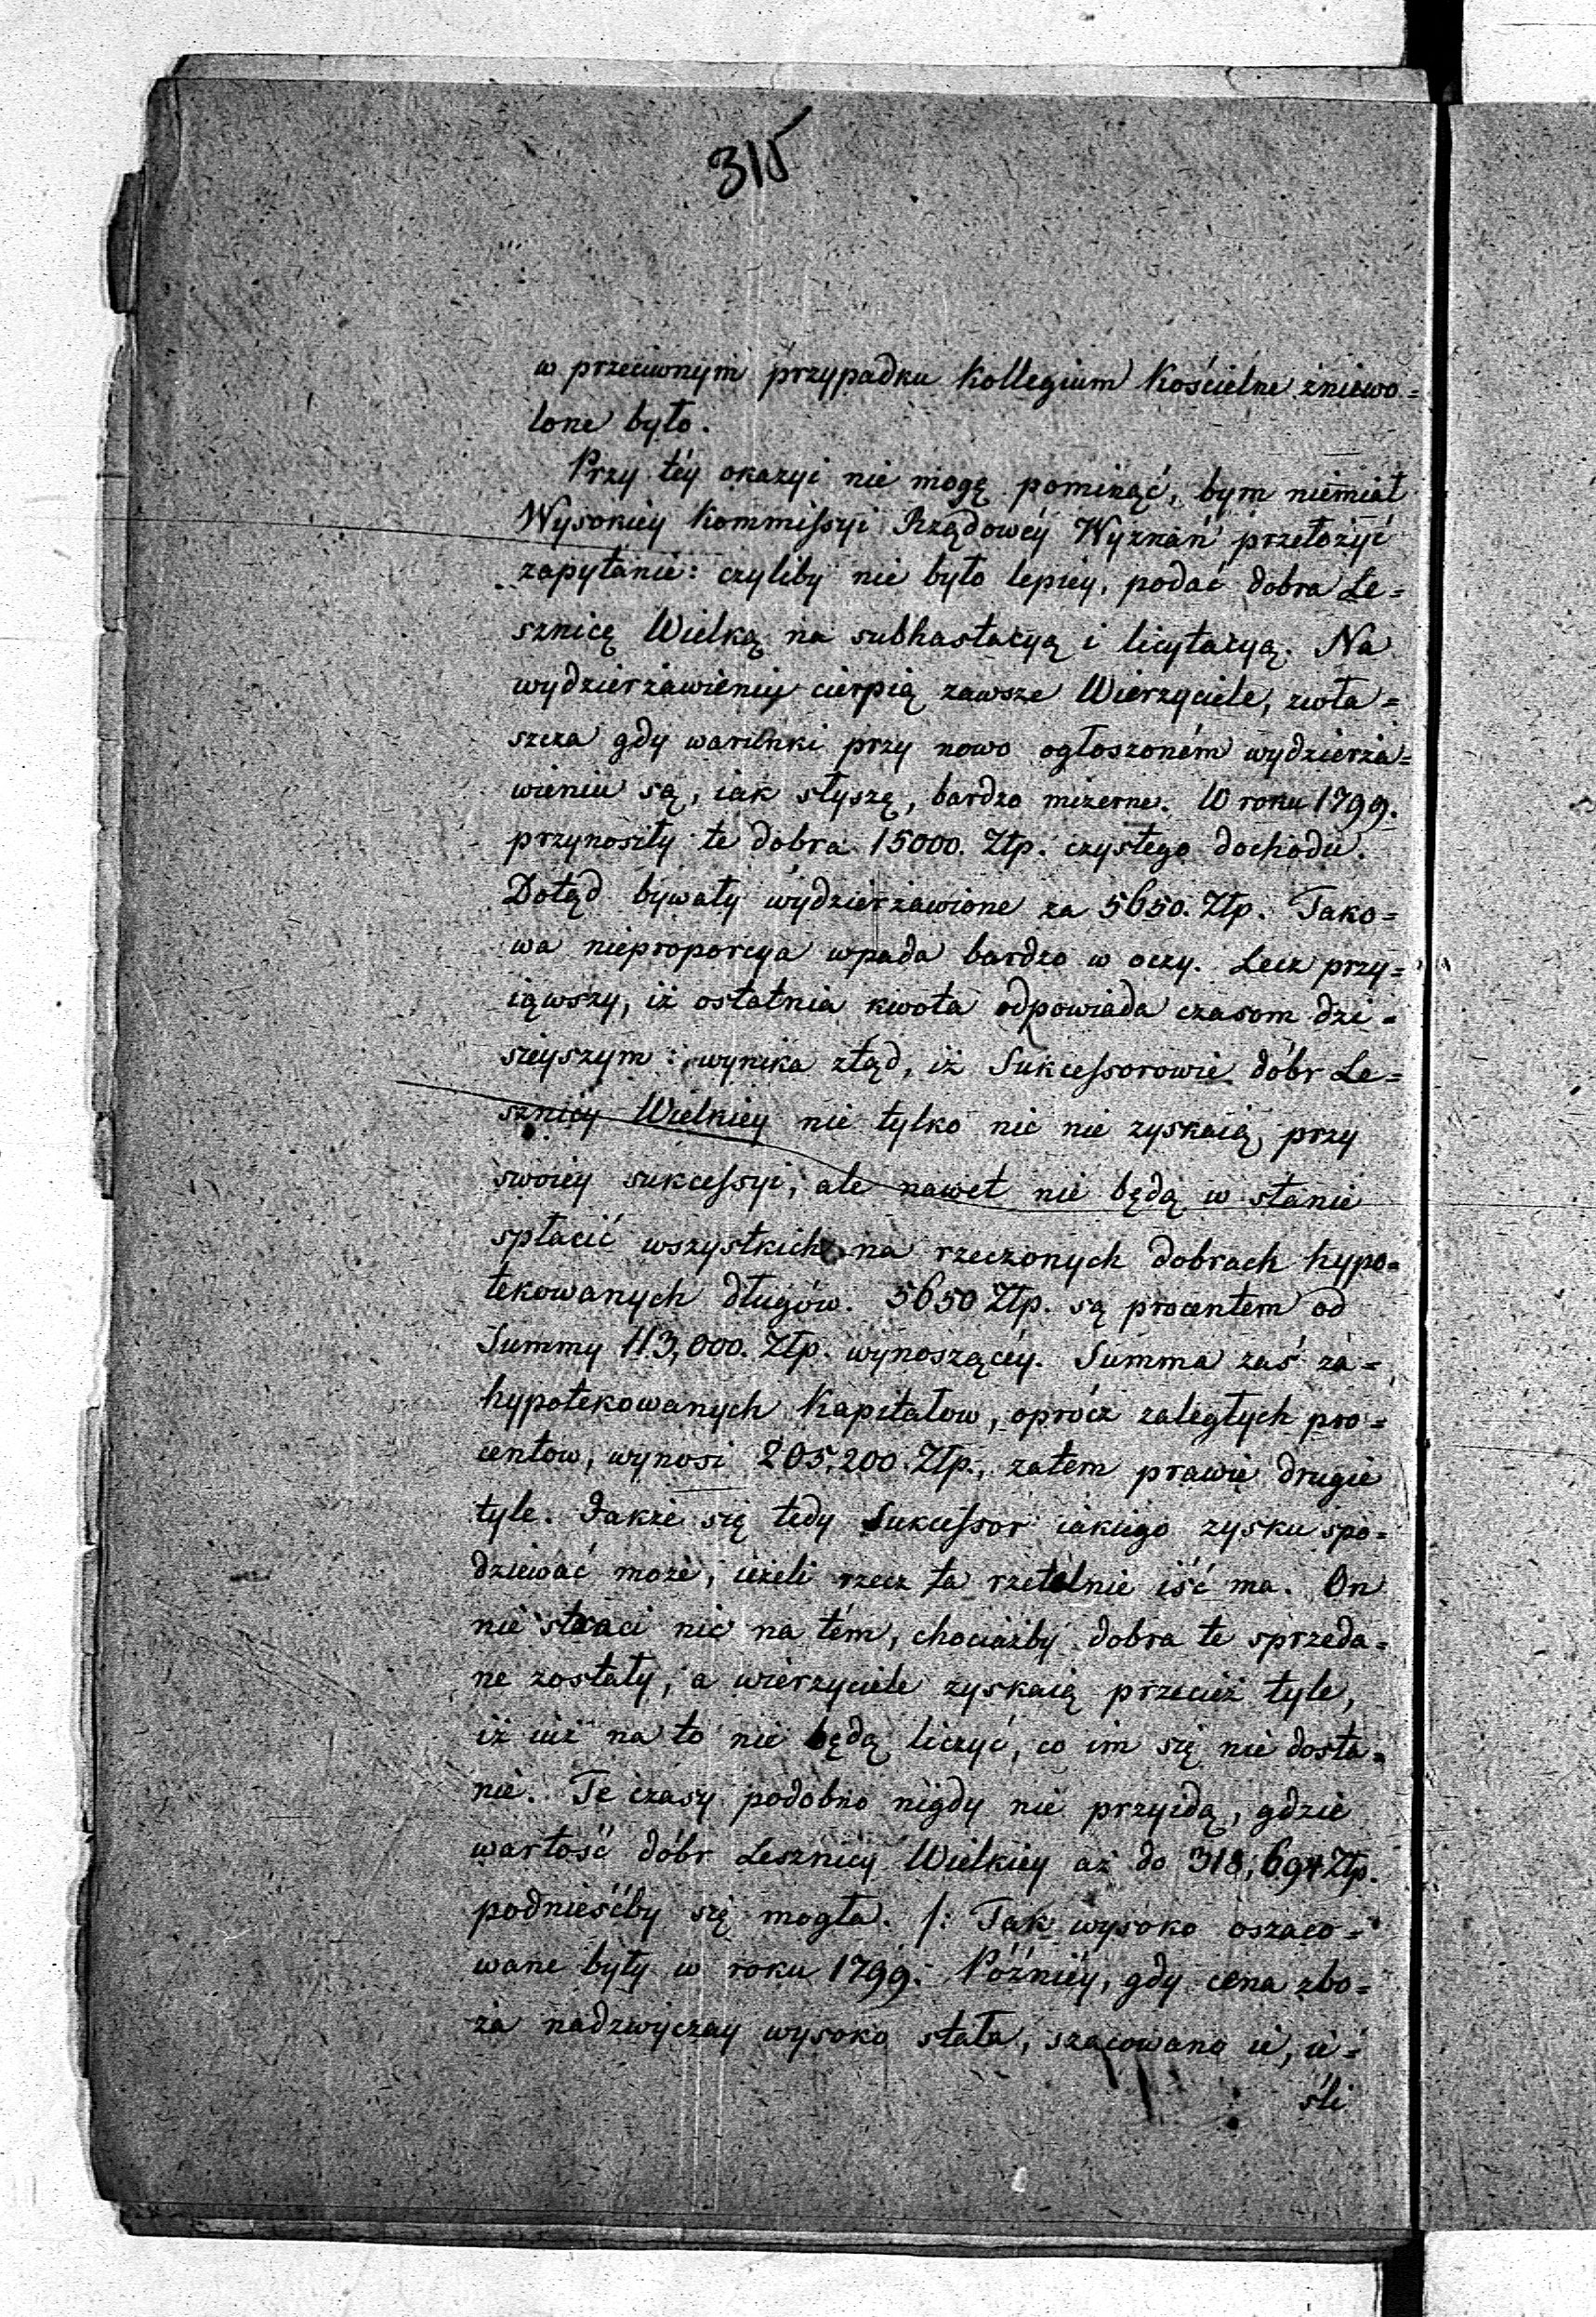 315
w przeciwnym przypadku Kollegium Kościelne zniewo=
lone było.
Przy téy okazyi nie mogę pominąć, bym niemiał
Wysokiéy Kommissyi Rządowéy Wyznań przełożyć
zapytanie: czyliby nie było lepiéy, podać dobra Le=
sznicę Wielką na subhastacyą i licytacyą. Na
wydzierżawieniu cierpią zawsze Wierzyciele, zwła=
szcza gdy warunki przy nowo ogłoszoném wydzierża=
wieniu są, iak słyszę, bardzo mizerne. W roku 1799.
przynosiły te dobra 15000. Złp. czystego dochodu.
Dotąd bywały wydzierżawione za 5650. Złp. Tako=
wa nieproporcya wpada bardzo w oczy. Lecz przy=
iąwszy, iż ostatnia kwota odpowiada czasom dzi=
sieyszym: wynika ztąd, iż Sukcessorowie dóbr Le=
sznicy Wielkiey nie tylko nic nie zyskaią przy
swoiey sukcessyi, ale nawet nie będą w stanie
spłacić wszystkich na rzeczonych dobrach hypo=
tekowanych długów. 5650 Złp. są procentem od
Summy 113,000. Złp. wynoszącéy. Summa zaś za=
hypotekowanych Kapitałow, oprócz zaległych pro=
centow, wynosi 205,200. Złp., zatem prawie drugie
tyle. Jakże się tedy Sukcessor iakiego zysku spo=
dziewać może, ieżeli rzecz ta rzetelnie iść ma. On
nie straci nic na tém, chociażby dobra te sprzeda=
ne zostały, a wierzyciele zyskaią przecież tyle,
iż iuż na to nie będą liczyć, co im się nie dosta=
nie. Te czasy podobno nigdy nie przyidą, gdzie
wartość dóbr Lesznicy Wielkiey aż do 318,694 Złp.
podnieśćby się mogła. /: Tak wysoko oszaco=
wane były w roku 1799. Późniéy, gdy cena zbo=
ża nadzwyczay wysoko stała, szacowano ie, ie=
śli